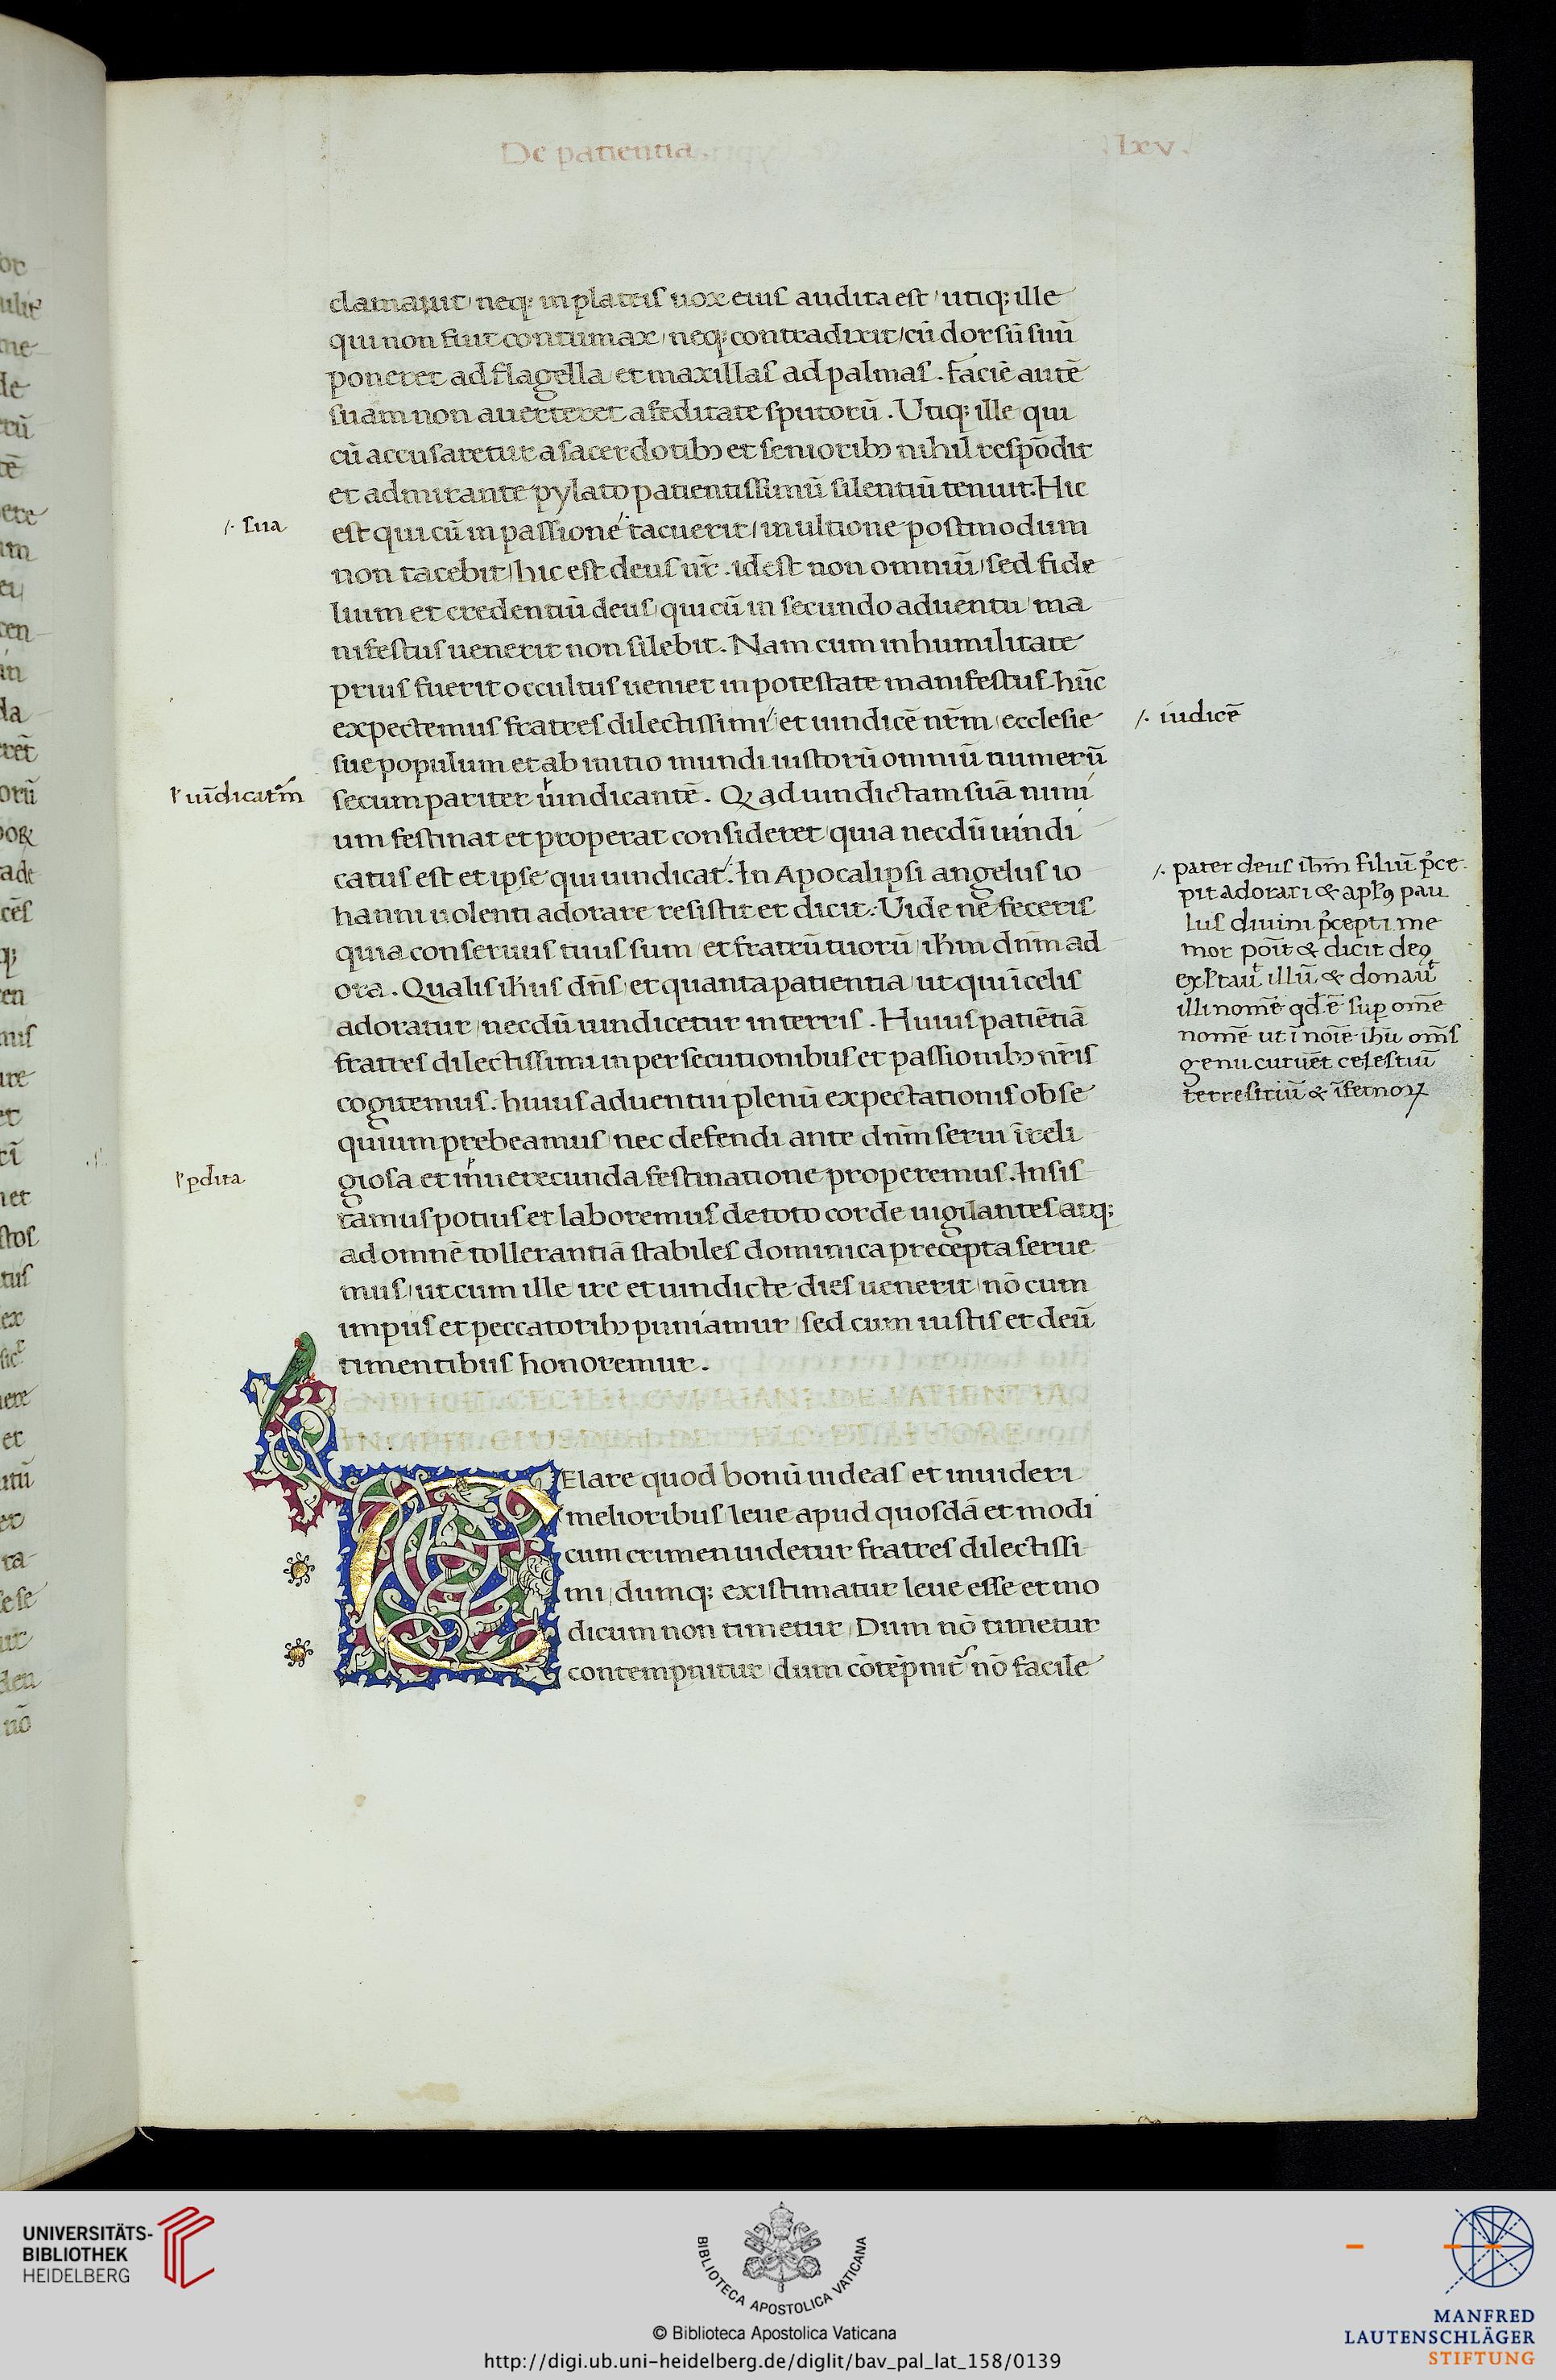 De patientia.
lxv.
clamauit neq; in plateis uox eius audita est utiq; ille
qui non fuit contumax neq; contradixit cū dorsū suū
poneret ad flagella et maxillas ad palmas. Faciē autē
suam non auerteret a feditate sputorū. Utiq; ille qui
cū accusaretur a sacerdotibꝫ et senioribꝫ nihil respōdit
et admirante pylato patientissimū silentiū tenuit. Hic
est qui cū in passione tacuerit in ultione postmodum
non tacebit hic est deus nr̄. id est non omniū sed fide
lium et credentiū deus qui cū in secundo aduentu ma
nifestus uenerit non silebit. Nam cum in humilitate
prius fuerit occultus ueniet in potestate manifestus. hūc
expectemus fratres dilectissimi et uindicē nr̄m ecclesie
sue populum et ab initio mundi iustorū omniū numerū
secum pariter uindicantē. Q ad uindictam suā nimi
um festinat et properat consideret quia necdū uindi
catus est et ipse qui uindicat. In Apocalipsi angelus io
hanni uolenti adorare resistit et dicit. Uide ne feceris
quia conseruus tuus sum et fratrū tuorū ih̄m dn̄m ad
ora. Qualis ih̄us dn̄s et quanta patientia ut qui ī celis
adoratur necdū uindicetur in terris. Huius patiētiā
fratres dilectissimi in persecutionibus et passionibꝫ nr̄is
cogitemus. huius aduentui plenū expectationis obse
quium prebeamus nec defendi ante dn̄m serui īreli
giosa et inuerecunda festinatione properemus. Insis
tamus potius et laboremus de toto corde uigilantes atq;
ad omnē tollerantiā stabiles dominica precepta serue
mus ut cum ille ire et uindicte dies uenerit nō cum
impiis et peccatoribꝫ puniamur sed cum iustis et deū
timentibus honoremur.
/. sua
/. iudicē
l' uīdicat'm
/. pater deus ih̄m filiū p̄ce
pit adorari & apl's pau
lus diuini p̄cepti me
mor poīt & dicit deꝰ
exl'tauͭ illū & donauͭ
illi nomē qd̄ ē sup̱ omē
nomē ut ī noīe ih̄u om̄s
genu curuēt celestiū
terrestriū & īfernoꝝ
l' pdita
ZElare quod bonū uideas et inuideri
melioribus leue apud quosdā et modi
cum crimen uidetur fratres dilectissi
mi dumq; existimatur leue esse et mo
dicum non timetur Dum nō timetur
contempnitur dum cōtēpnit' nō facile
UNIVERSITÄTS-
BIBLIOTHEK
HEIDELBERG
BIBLIOTECA APOSTOLICA VATICANA
© Biblioteca Apostolica Vaticana
http://digi.ub.uni-heidelberg.de/diglit/bav_pal_lat_158/0139
MANFRED
LAUTENSCHLÄGER
STIFTUNG